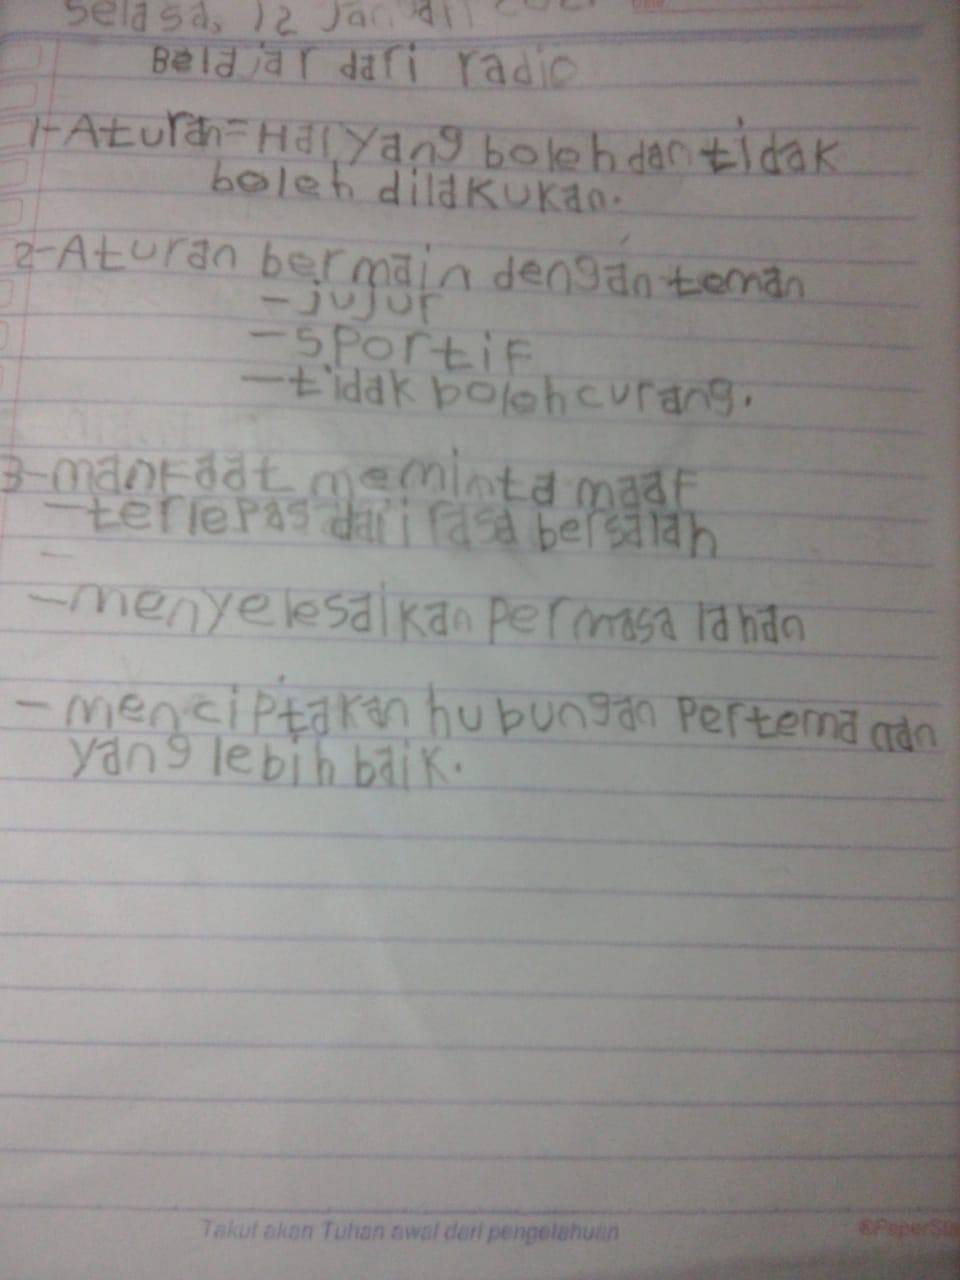 Selasa, 12 Januari 2021
Belajar dari radio
1-Aturan=Hal yang boleh dan tidak
boleh dilakukan.
2-Aturan bermain dengan teman
-jujur
-sportif
-tidak boleh curang.
3-manfaat meminta maaf
-terlepas dari rasa bersalah
-menyelesaikan permasalahan
-menciptakan hubungan pertemanan
yang lebih baik.
Takut akan Tuhan awal dari pengetahuan